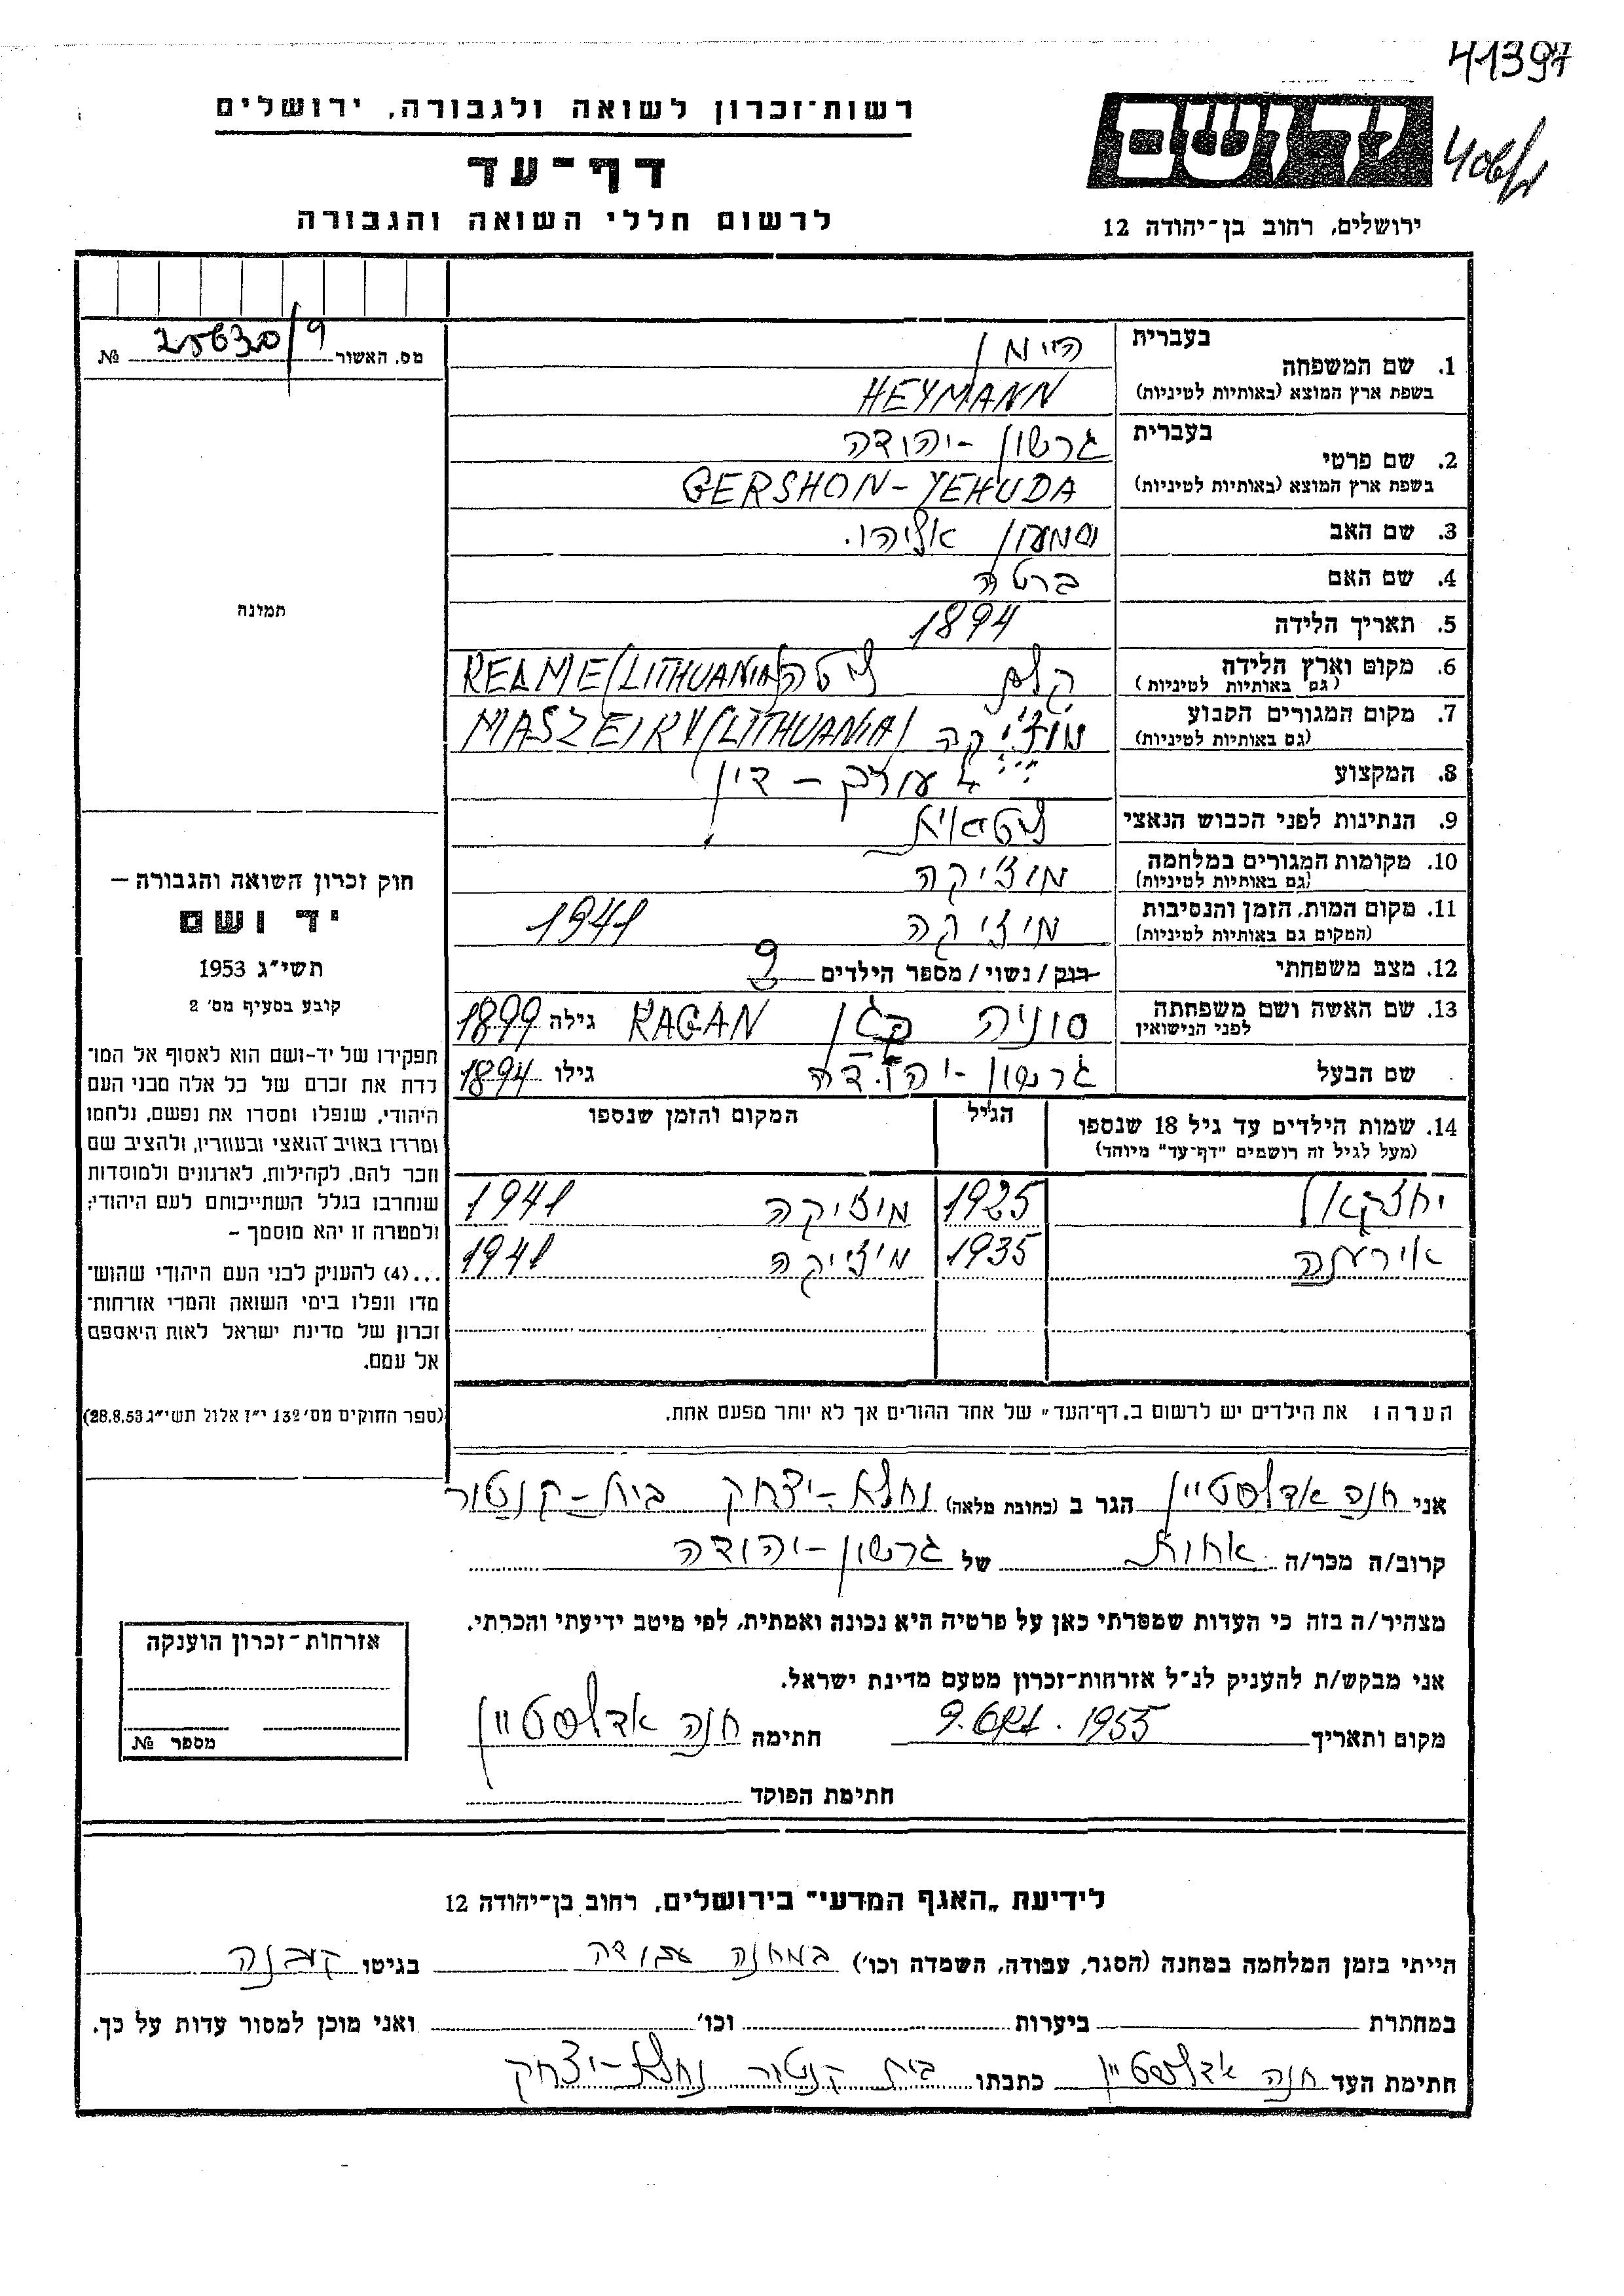 41397
רשות־זכרון לשואה ולגבורה, ירושלים
דף־עד
לרשום חללי השואה והגבורה
ירושלים, רחוב בן־יהודה 12
מס. האשור № 20630/9
בעברית היימן
1. שם המשפחה
בשפת ארץ המוצא (באותיות לטיניות) HEYMANN
בעברית גרשון-יהודה
2. שם פרטי
בשפת ארץ המוצא (באותיות לטיניות) GERSHON-YEHUDA
3. שם האב שמעון אליהו.
4. שם האם ברטה
5. תאריך הלידה 1894
6. מקום וארץ הלידה קלם ליטה KELME/LITHUANIA/
(גם באותיות לטיניות)
7. מקום המגורים הקבוע מוז'יקה MASZEIKY/LITHUANIA/
(גם באותיות לטיניות)
8. המקצוע עורך-דין
9. הנתינות לפני הכבוש הנאצי ליטאית
10. מקומות המגורים במלחמה מוז'יקה
(גם באותיות לטיניות)
11. מקום המות, הזמן והנסיבות מוז'יקה 1941
(המקום גם באותיות לטיניות)
12. מצב משפחתי רווק/נשוי/מספר הילדים
13. שם האשה ושם משפחתה סוניה כגן KAGAN גילה 1899
לפני הנישואין
שם הבעל גרשון-יהודה גילו 1894
14. שמות הילדים עד גיל 18 שנספו הגיל המקום והזמן שנספו
(מעל לגיל זה רושמים "דף־עד" מיוחד)
יחזקאל 1925 מוז'יקה 1941
אירענה 1935 מוז'יקה 1941
הערה: את הילדים יש לרשום ב"דף־העד" של אחד ההורים אך לא יותר מפעם אחת.
תמונה
חוק זכרון השואה והגבורה —
יד ושם
תשי"ג 1953
קובע בסעיף מס' 2
תפקידו של יד-ושם הוא לאסוף אל המו־
לדת את זכרם של כל אלה מבני העם
היהודי, שנפלו ומסרו את נפשם, נלחמו
ומרדו באויב הנאצי ובעוזריו, ולהציב שם
וזכר להם, לקהילות, לארגונים ולמוסדות
שנחרבו בגלל השתייכותם לעם היהודי;
ולמטרה זו יהא מוסמך –
...(4) להעניק לבני העם היהודי שהוש־
מדו ונפלו בימי השואה והמרי אזרחות־
זכרון של מדינת ישראל לאות היאספם
אל עמם.
(ספר החוקים מס' 132 י"ז אלול תשי"ג 28.8.53)
אני חנה אדלסטיין הגר ב (כתובת מלאה) נחלת-יצחק בית-קנטור
קרוב/ה מכר/ה אחות של גרשון-יהודה
מצהיר/ה בזה כי העדות שמסרתי כאן על פרטיה היא נכונה ואמתית, לפי מיטב ידיעתי והכרתי.
אני מבקש/ת להעניק לנ"ל אזרחות־זכרון מטעם מדינת ישראל.
מקום ותאריך 1955 חתימה חנה אדלסטיין
חתימת הפוקד
אזרחות־זכרון הוענקה
מספר №
לידיעת "האגף המדעי" בירושלים, רחוב בן־יהודה 12
הייתי בזמן המלחמה במחנה (הסגר, עבודה, השמדה וכו') במחנה עבודה בגיטו קובנה
במחתרת ביערות וכו' ואני מוכן למסור עדות על כך.
חתימת העד חנה אדלסטיין כתבתו בית קנטור נחלת-יצחק